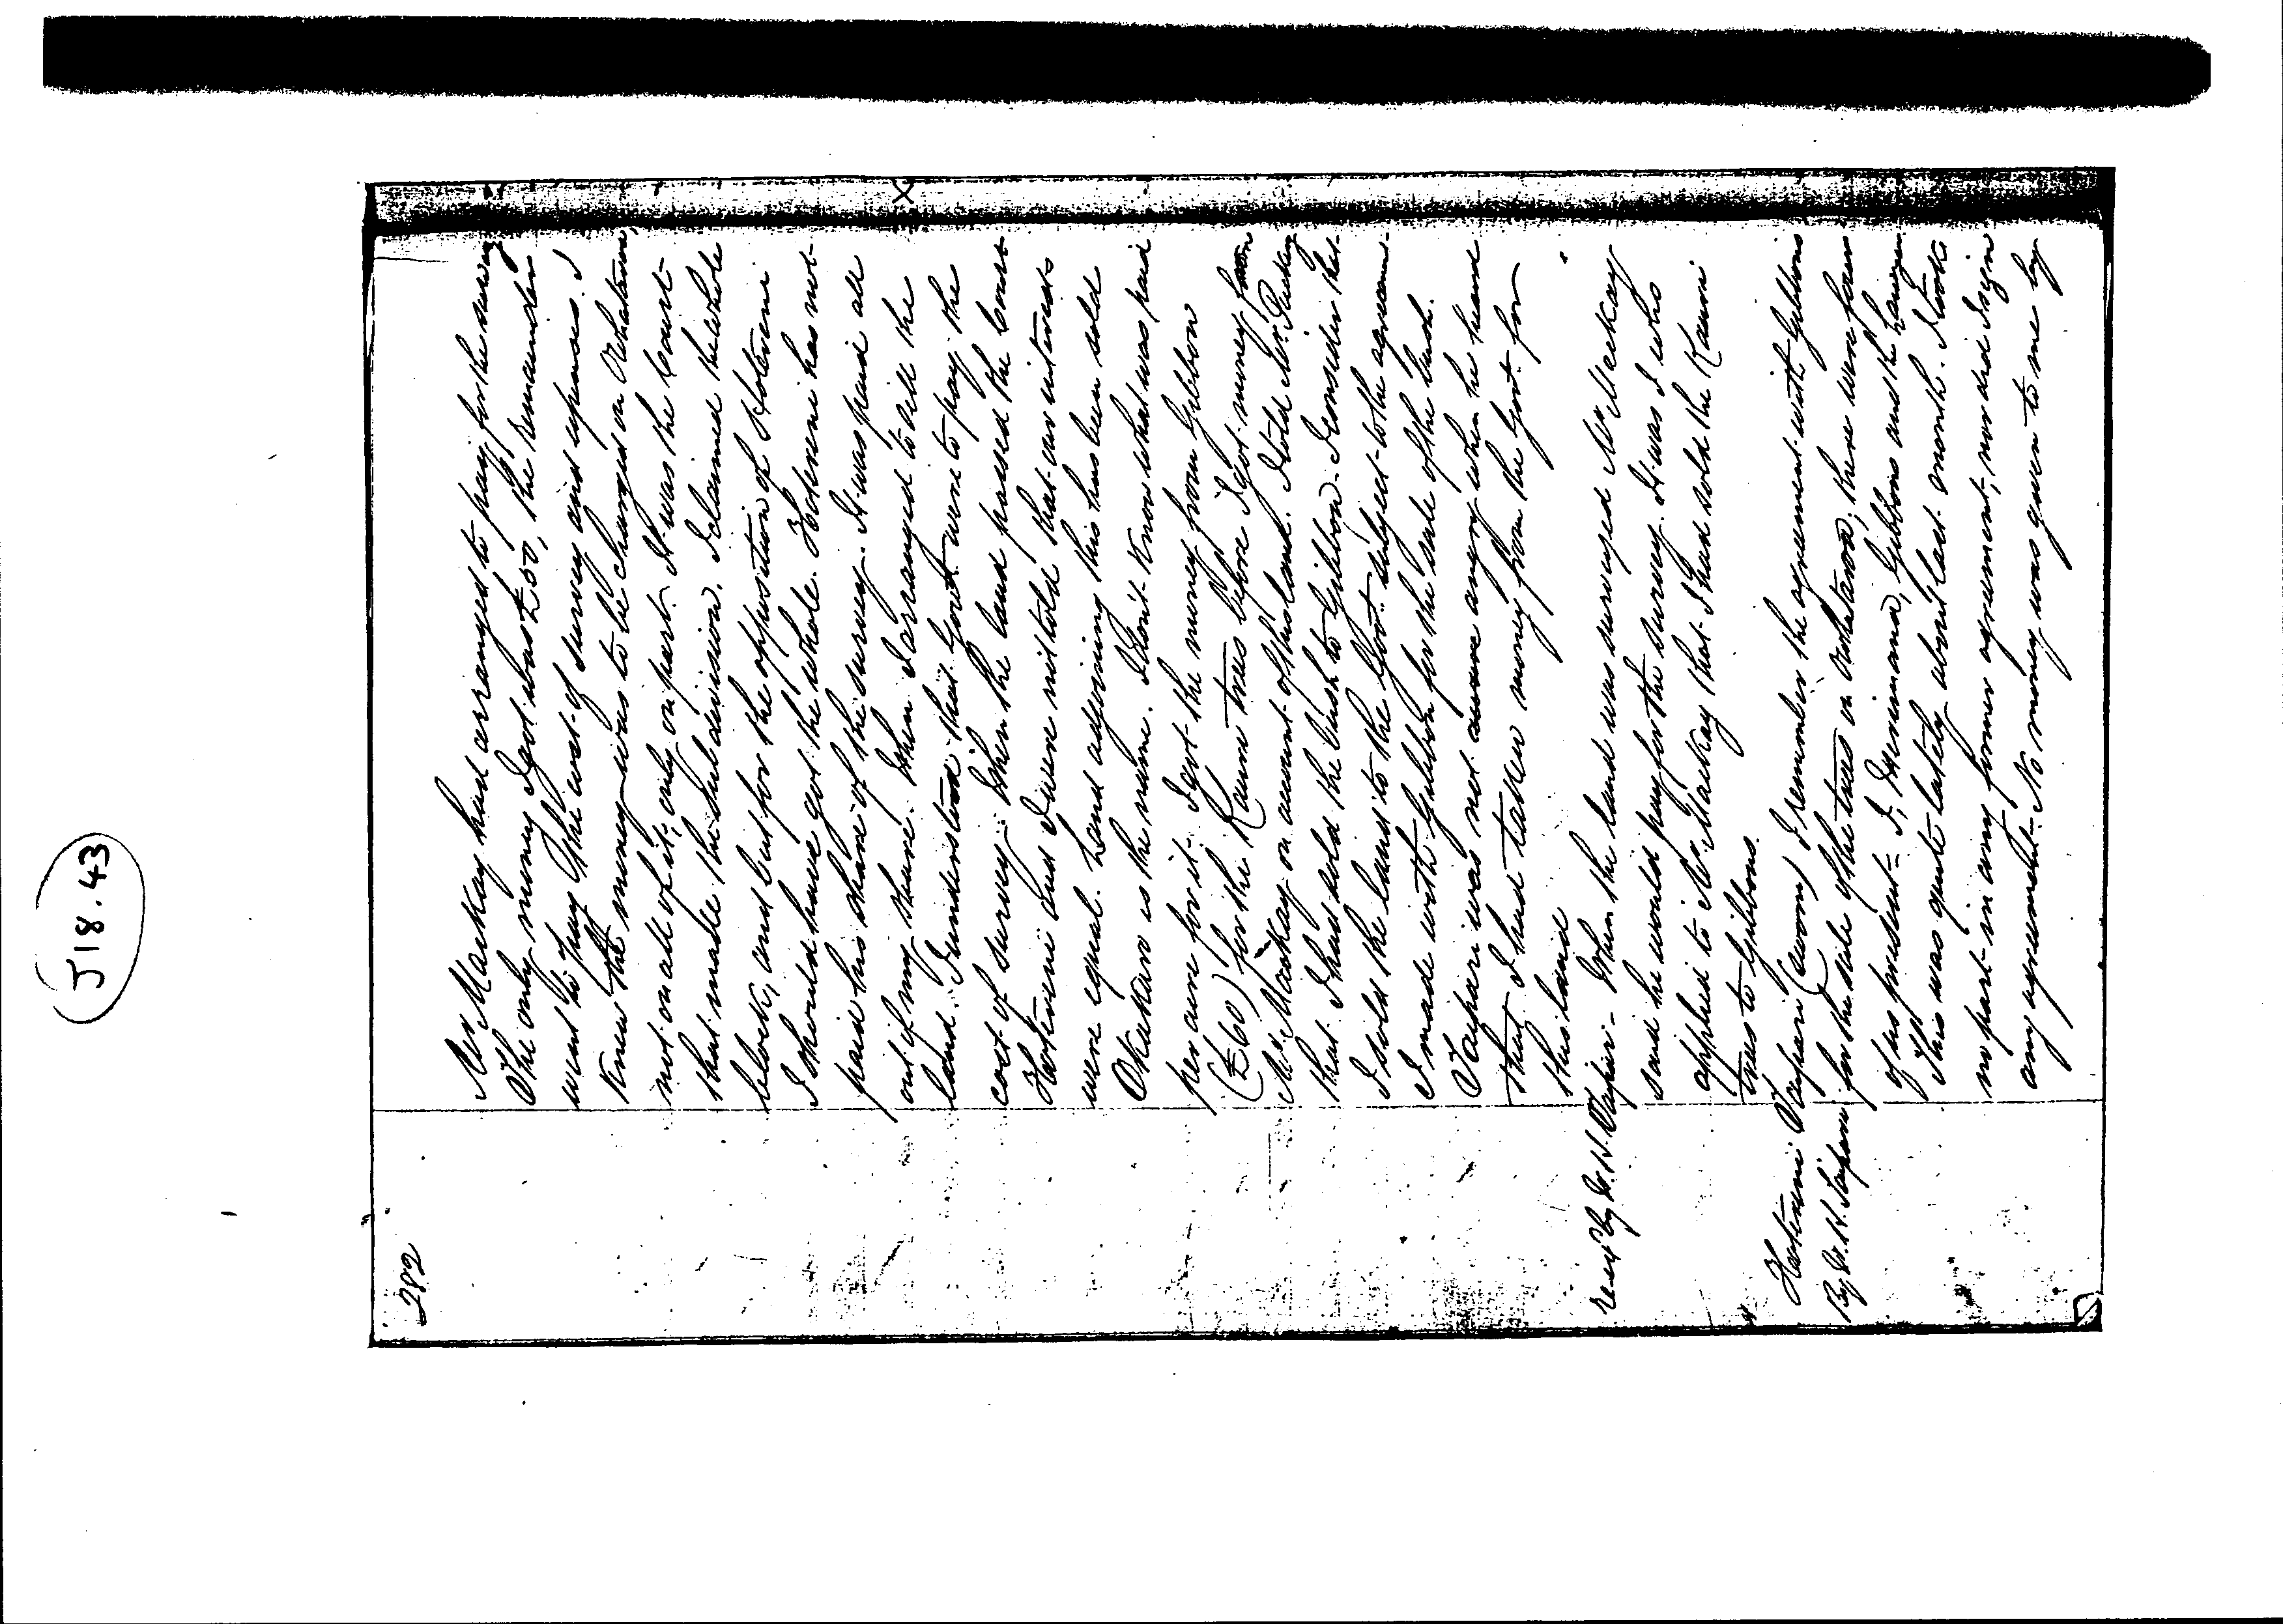 J 18. 43
282
Mr Mackay had arranged to pay for the survey
The only money I got about £50, the remainder
went to pay the cost of survey and expenses. I
knew the money was to be charged on
not on all of it, only on part. It was the Court
that made the subdivision. I claimed the whole
block, and but for the opposition of Hotereni
I should have got the whole. Hotereni has not
paid his share of the survey. It was paid all
out of my share. When I arranged to sell the
land I understood that Govt were to pay the
cost of survey. When the land passed the Court
Hotereni and I were not told that our interests
were equal. Land adjoining this has been sold
is the name. I don't know what was paid
per acre for it. I got the money from Gibbon
(£60) for the Kauri trees before I got money from
Mr Mackay on account of this land. I told Mr
that I had sold the bush to Gibbon. I consider that
I sold the land to the Govt. subject to the agreemt.
I made with Gibbon for the sale of the bush.
Taipari was not angry when he heard
that I had taken money from the Govt. for
this land
reexd by W. H. Taipari - When the land was surveyed Mr Mackay
said he would pay for the survey. It was I who
applied to Mr Mackay that I had sold the Kauri
trees to Gibbons.
Hoterini Taipari (sworn) I remember the agreement with Gibbons
By W. H. Taipari for the sale of the trees on there were four
of us present - I, Gibbons and the
This was quite lately about last month. I took
no part in any former agreement, nor did I sign
any agreement. No money was given to me by